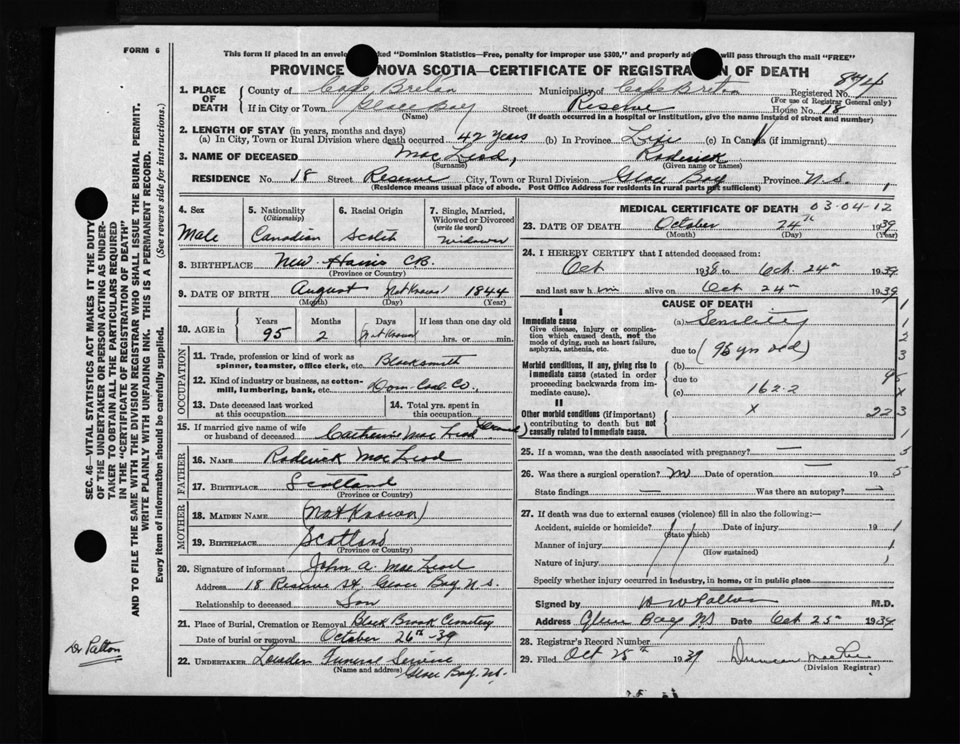 FORM 6
This form if placed in an envelope marked "Dominion Statistics—Free, penalty for improper use $300," and properly addressed will pass through the mail "FREE"
PROVINCE OF NOVA SCOTIA—CERTIFICATE OF REGISTRATION OF DEATH
1. PLACE OF DEATH County of Cape Breton Municipality of Cape Breton Registered No.
(For use of Registrar General only)
If in City or Town Glace Bay Street Reserve House No. 18
(Name) (If death occurred in a hospital or institution, give the name instead of street and number)
2. LENGTH OF STAY (in years, months and days)
(a) In City, Town or Rural Division where death occurred 42 Years (b) In Province Life (c) In Canada (if immigrant)
3. NAME OF DECEASED Mac Leod, Roderick
(Surname) (Given name or names)
RESIDENCE No. 18 Street Reserve City, Town or Rural Division Glace Bay Province N.S.
(Residence means usual place of abode. Post Office Address for residents in rural parts not sufficient)
4. Sex
Male
5. Nationality
(Citizenship)
Canadian
6. Racial Origin
Scotch
7. Single, Married, Widowed or Divorced
(write the word)
Widower
8. BIRTHPLACE New Harris C.B.
(Province or Country)
9. DATE OF BIRTH August Not Known 1844
(Month) (Day) (Year)
10. AGE in Years Months Days If less than one day old
95 2 Not Known hrs. or min.
OCCUPATION
11. Trade, profession or kind of work as spinner, teamster, office clerk, etc. Blacksmith
12. Kind of industry or business, as cotton-mill, lumbering, bank, etc. Dom. Coal Co.
13. Date deceased last worked at this occupation
14. Total yrs. spent in this occupation
15. If married give name of wife or husband of deceased Catherine Mac Leod
FATHER
16. NAME Roderick Mac Leod
17. BIRTHPLACE Scotland
(Province or Country)
MOTHER
18. MAIDEN NAME (Not Known)
19. BIRTHPLACE Scotland
(Province or Country)
20. Signature of informant John A. Mac Leod
Address 18 Reserve St. Glace Bay N.S.
Relationship to deceased Son
21. Place of Burial, Cremation or Removal Black Brook Cemetery
Date of burial or removal October 26th-39
22. UNDERTAKER Louden Funeral Service
(Name and address) Glace Bay, N.S.
MEDICAL CERTIFICATE OF DEATH 03-04-12
23. DATE OF DEATH October 24th 1939
(Month) (Day) (Year)
24. I HEREBY CERTIFY that I attended deceased from:
Oct 1938 to Oct. 24th 1939
and last saw him alive on Oct 24th 1939
CAUSE OF DEATH
I
Immediate cause
Give disease, injury or complication which caused death, not the mode of dying, such as heart failure, asphyxia, asthenia, etc.
(a) Senility
due to (95 yrs old)
Morbid conditions, if any, giving rise to immediate cause (stated in order proceeding backwards from immediate cause).
(b)
due to
(c) 162-2
II
Other morbid conditions (if important) contributing to death but not causally related to immediate cause.
x
25. If a woman, was the death associated with pregnancy? —
26. Was there a surgical operation? No Date of operation — 19
State findings — Was there an autopsy? —
27. If death was due to external causes (violence) fill in also the following:—
Accident, suicide or homicide? Date of injury 19
(State which)
Manner of injury
(How sustained)
Nature of injury
Specify whether injury occurred in industry, in home, or in public place
Signed by M.D.
Address Glace Bay NS Date Oct 25th 1939
28. Registrar's Record Number
29. Filed Oct 25th 1939
(Division Registrar)
SEC. 46—VITAL STATISTICS ACT MAKES IT THE DUTY OF THE UNDERTAKER OR PERSON ACTING AS UNDERTAKER TO OBTAIN ALL THE PARTICULARS REQUIRED IN THE "CERTIFICATE OF REGISTRATION OF DEATH" AND TO FILE THE SAME WITH THE DIVISION REGISTRAR WHO SHALL ISSUE THE BURIAL PERMIT.
WRITE PLAINLY WITH UNFADING INK. THIS IS A PERMANENT RECORD.
Every item of information should be carefully supplied. (See reverse side for instructions.)
Dr Patton